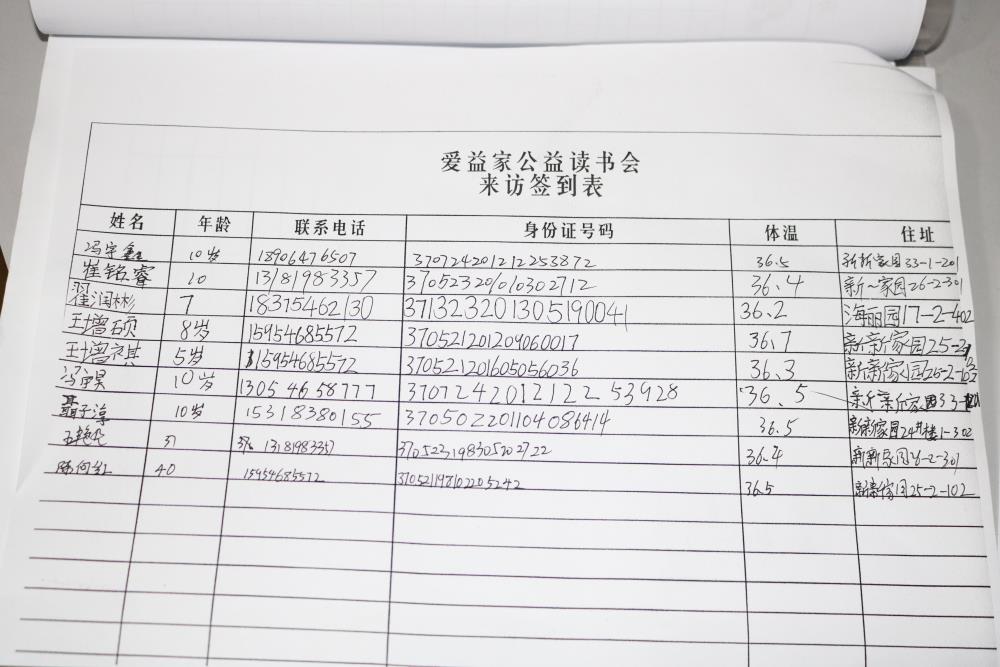 爱益家公益读书会
来访签到表
姓名 年龄 联系电话 身份证号码 体温 住址
冯宇鑫 10岁 18906476507 370724201212253872 36.5 新新家园33-1-201
崔铭睿 10 13181983357 370523201010302712 36.4 新~家园26-2-301
翟润彬 7 18375462130 371323201305190041 36.2 海丽园17-2-402
王增硕 8岁 15954685572 370521201209060017 36.7 新新家园25-2
王增祺 5岁 15954685572 370521201605056036 36.3 新新家园25-2-102
冯 10岁 13054658777 370724201212253928 36.5 新新家园33-1
聂子淳 10岁 15318380155 370502201104086414 36.5 新新家园24#楼1-302
37 13181983357 370523198305202722 36.4 新新家园26-2-301
40 15954685572 370521198102205242 36.5 新新家园25-2-102